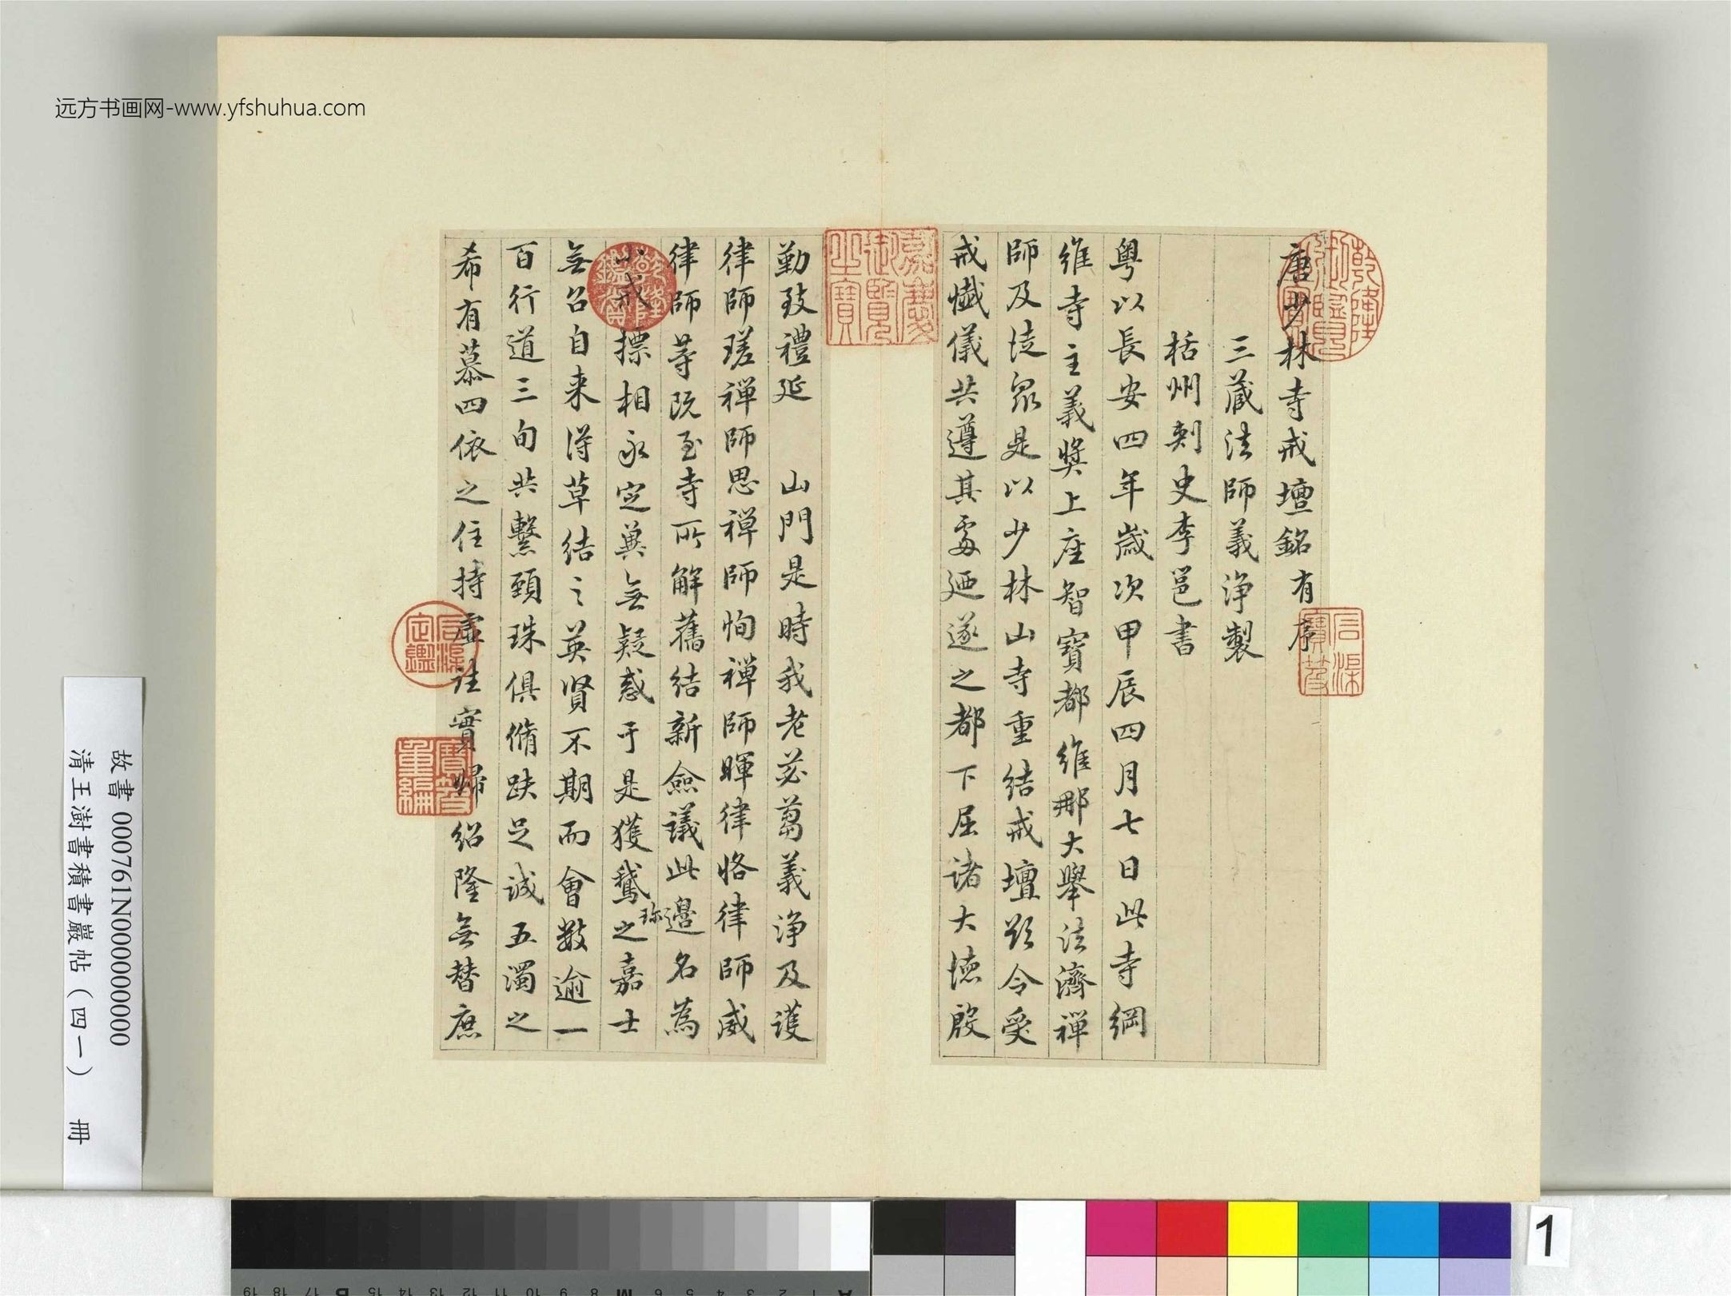 远方书画网-www.yfshuhua.com
唐少林寺戒壇銘有序
三藏法師義淨製
括州刺史李邕書
粵以長安四年歲次甲辰四月七日此寺綱
維寺主義獎上座智寶都維那大舉法濟禪
師及徒眾是以少林山寺重結戒壇欲令受
戒懺儀共遵其處廼遂之都下屈諸大德殷
勤致禮延 山門是時我老苾蒭義淨及護
律師瑳禪師思禪師恂禪師暉律恪律師威
律師等既至寺所解舊結新僉議此邊名為
小戒標相永定冀無疑惑于是獲鵝之嘉士
珎
無召自来得草結之英賢不期而會數逾一
百行道三旬共繫頸珠俱脩趺足誠五濁之
希有慕四依之住持虛往實歸紹隆無替庶
乾隆御覽之寶
石渠寶笈
嘉慶御覽之寶
乾隆鑑賞
石渠定鑑
寶笈重編
故書 000761N000000000
清王澍書積書巖帖（四一） 冊
1